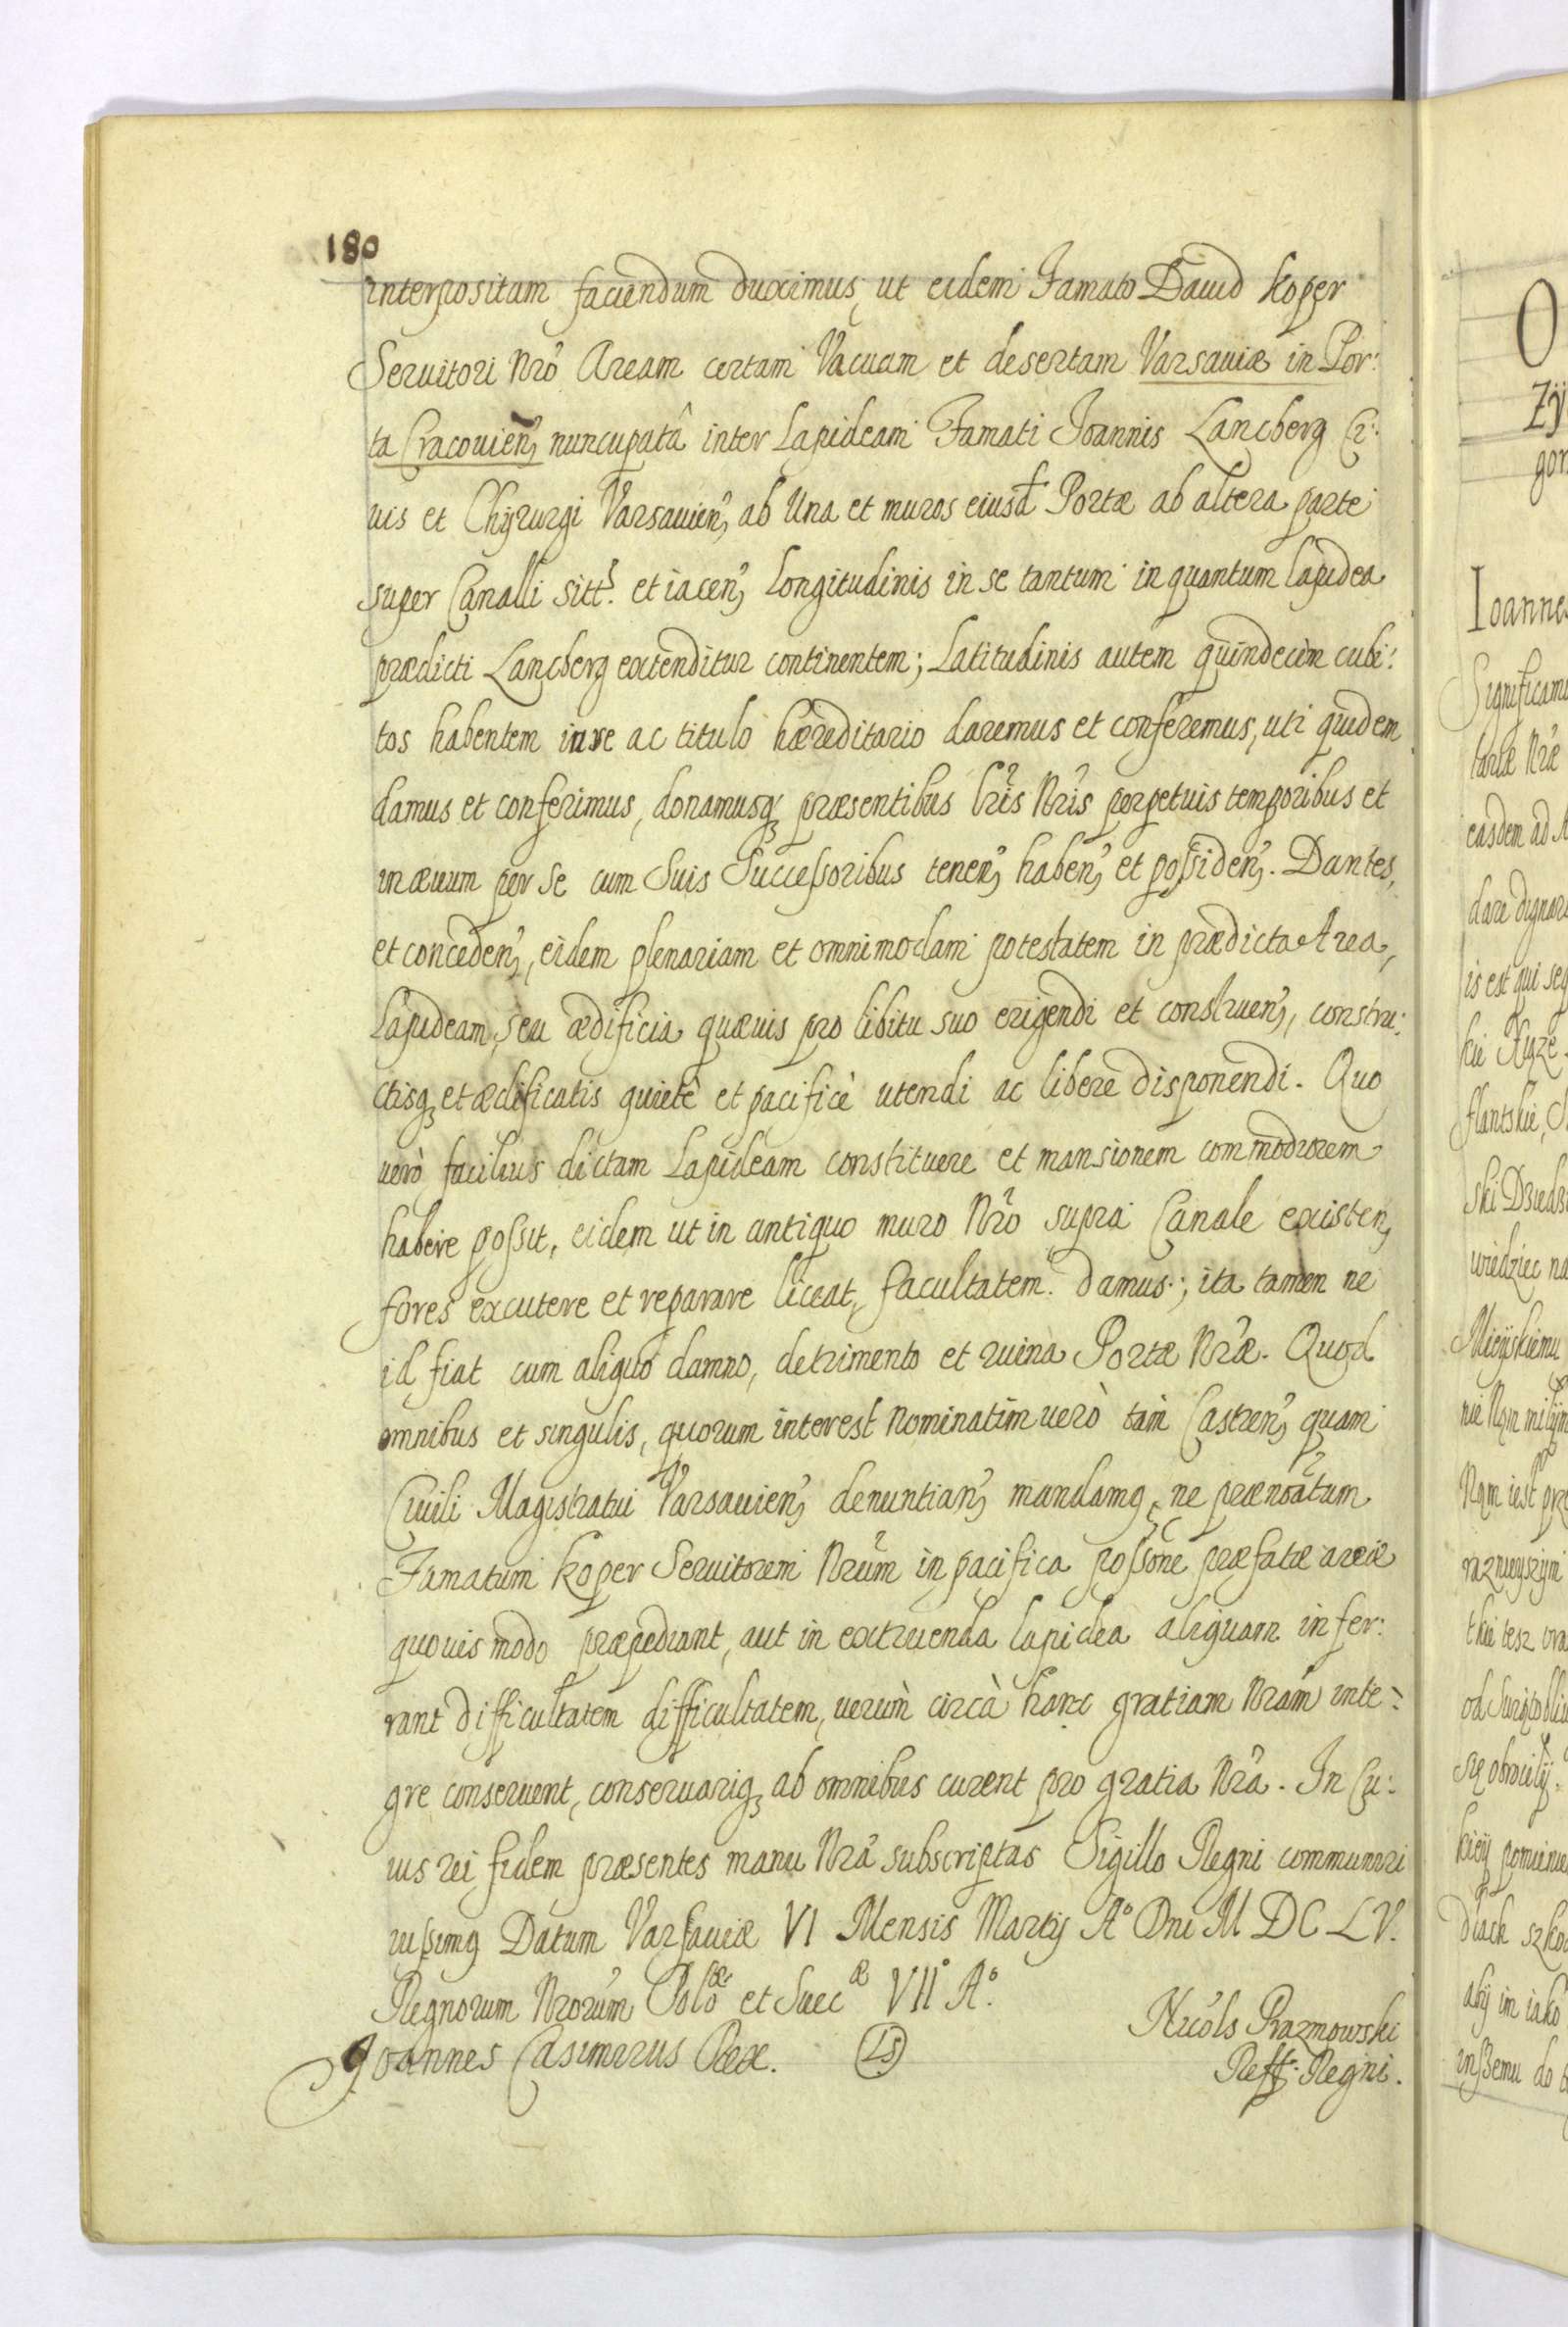 180
interpositam faciendum duximus, ut eidem Famato Dauid Koper
Seruitori Nrõ Aream certam Vacuam et desertam Varsauiæ in Por:
ta Cracouien̄, nuncupatâ inter Lapideam Famati Joannis Lancberg Ci:
uis et Chÿrurgi Varsauien̄, ab Una et muros eiusd̄ Portæ ab altera parte
super Canalli sitt. et iacen̄, Longitudinis in se tantum in quantum lapidea
prædicti Lancberg extenditur continentem; Latitudinis autem quindecim cubi:
tos habentem iure ac titulo hæreditario daremus et conferemus, uti quidem
damus et conferimus, donamusq præsentibus lr̃is Nr̃is perpetuis temporibus et
in æuum per se cum Suis Successoribus tenen̄, haben̄, et possiden̄. Dantes,
et conceden̄, eidem plenariam et omnimodam potestatem in prædicta Area,
Lapideam, seu ædificia quæuis pro libitu suo erigendi et construen̄, constru:
ctisq, et ædificatis quietè et pacificè utendi ac liberè disponendi. Quo
uerò facilius dictam Lapideam constituere et mansionem commodiorem
habere possit, eidem ut in antiquo muro Nrõ supra Canale existen̄,
fores excutere et reparare liceat, facultatem damus; ita tamen ne
id fiat cum aliquo damno, detrimento et ruina Portæ Nræ. Quod
omnibus et singulis, quorum interest nominatim uerò tam Castren̄, quam
Ciuili Magistratui Varsauien̄, denuntian̄, mandamq, ne prænõatum
Famatum Koper Seruitorem Nrũm in pacifica possõne præfatæ areæ
quouis modo præpediant, aut in extruenda lapidea aliquam infer:
rant difficultatem difficultatem, uerùm circà hanc gratiam Nrãm inte:
gre conseruent, conseruariq, ab omnibus curent pro gratia Nrã. In Cu:
ius rei fidem præsentes manu Nrã subscriptas Sigillo Regni communiri
iussimq Datum Varsauiæ VI Mensis Martij A° Dni M DC LV.
Regnorum Nrorũm Polõæ et Suecæ VII° A°.
Joannes Casimirus Rex. LS Nicols Prazmowski
Reff. Regni.